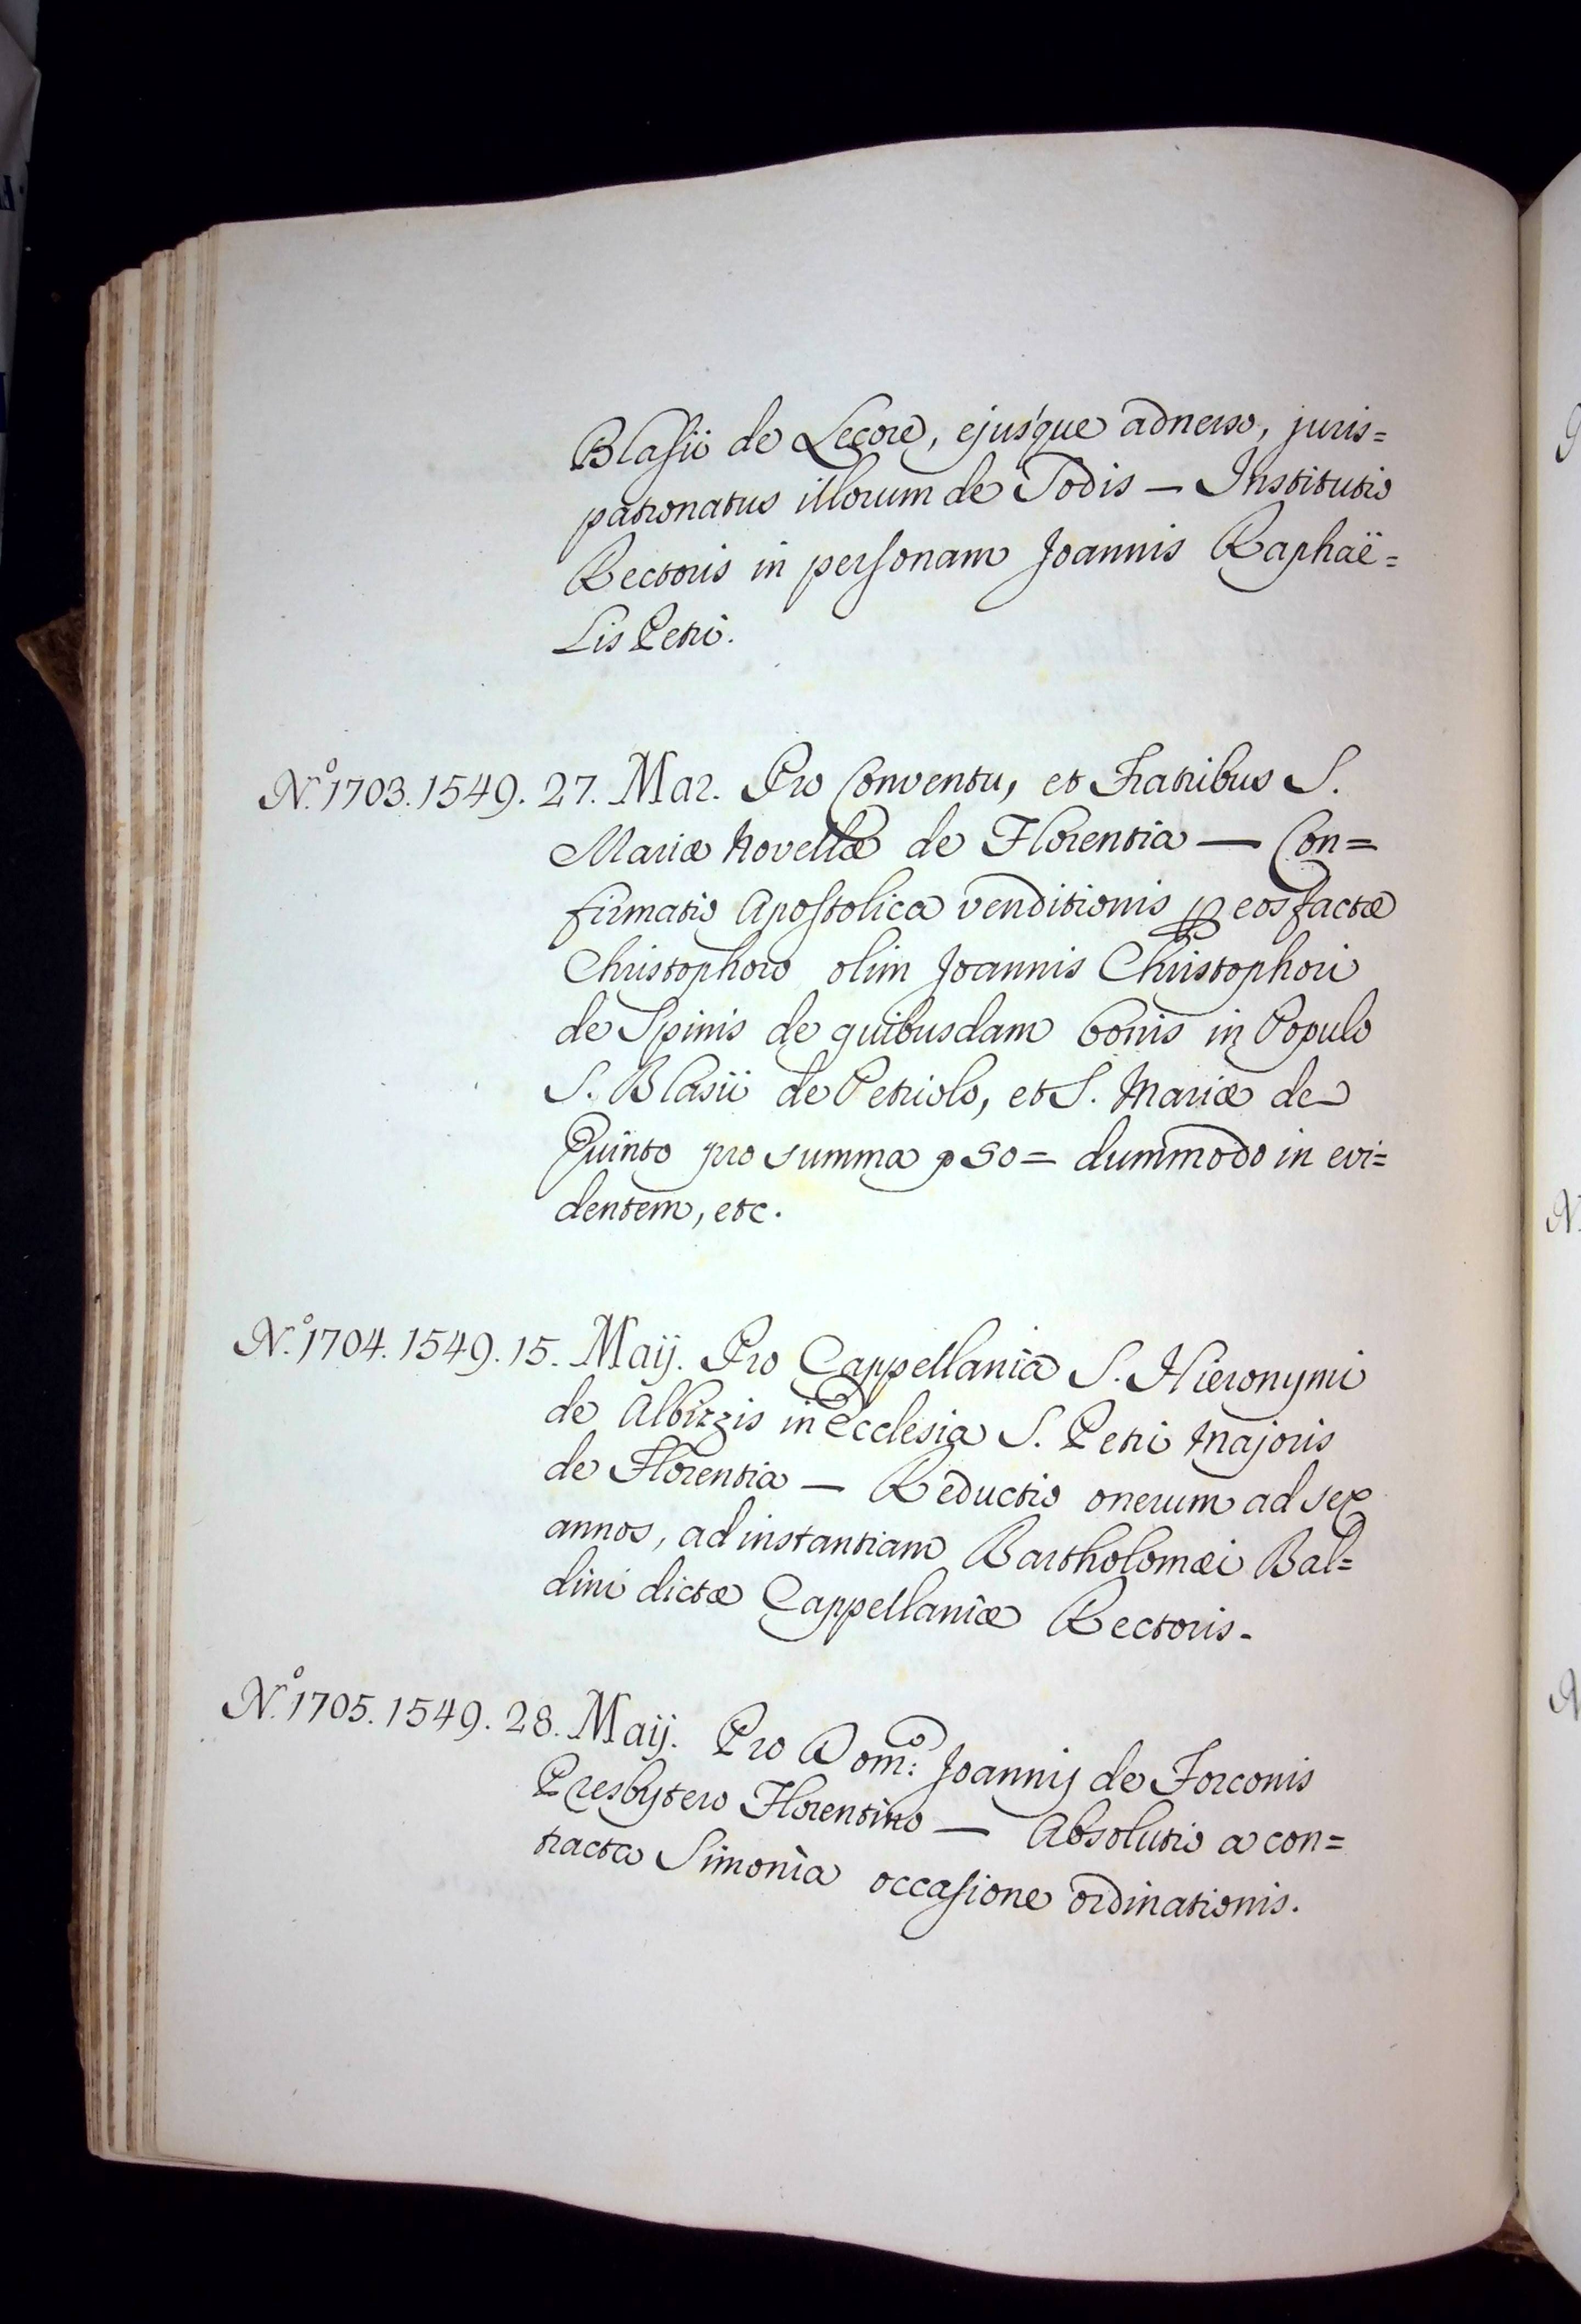 Blasii de Lecore, ejusque adnexo, juris=
patronatus illorum de Todis — Institutio
Rectoris in personam Joannis Raphaë=
lis Petri.
N.º 1703. 1549. 27. Mar. Pro Conventu, et Fratribus S.
Mariæ Novellæ de Florentia — Con=
firmatio Apostolica venditionis p eos factæ
Christophoro olim Joannis Christophori
de Spinis de quibusdam bonis in Populo
S. Blasii de Petriolo, et S. Mariæ de
Quinto pro summa 950= dummodo in evi=
dentem, etc.
N.º 1704. 1549. 15. Maij. Pro Cappellania S. Hieronymi
de Albizzis in Ecclesia S. Petri Majoris
de Florentia — Reductio onerum ad sex
annos, ad instantiam Bartholomæi Bal=
dini dictæ Cappellaniæ Rectoris.
N.º 1705. 1549. 28. Maij. Pro Domº: Joannij de Forconis
Presbytero Florentino — Absolutio a con=
tracta Simonia occasione ordinationis.